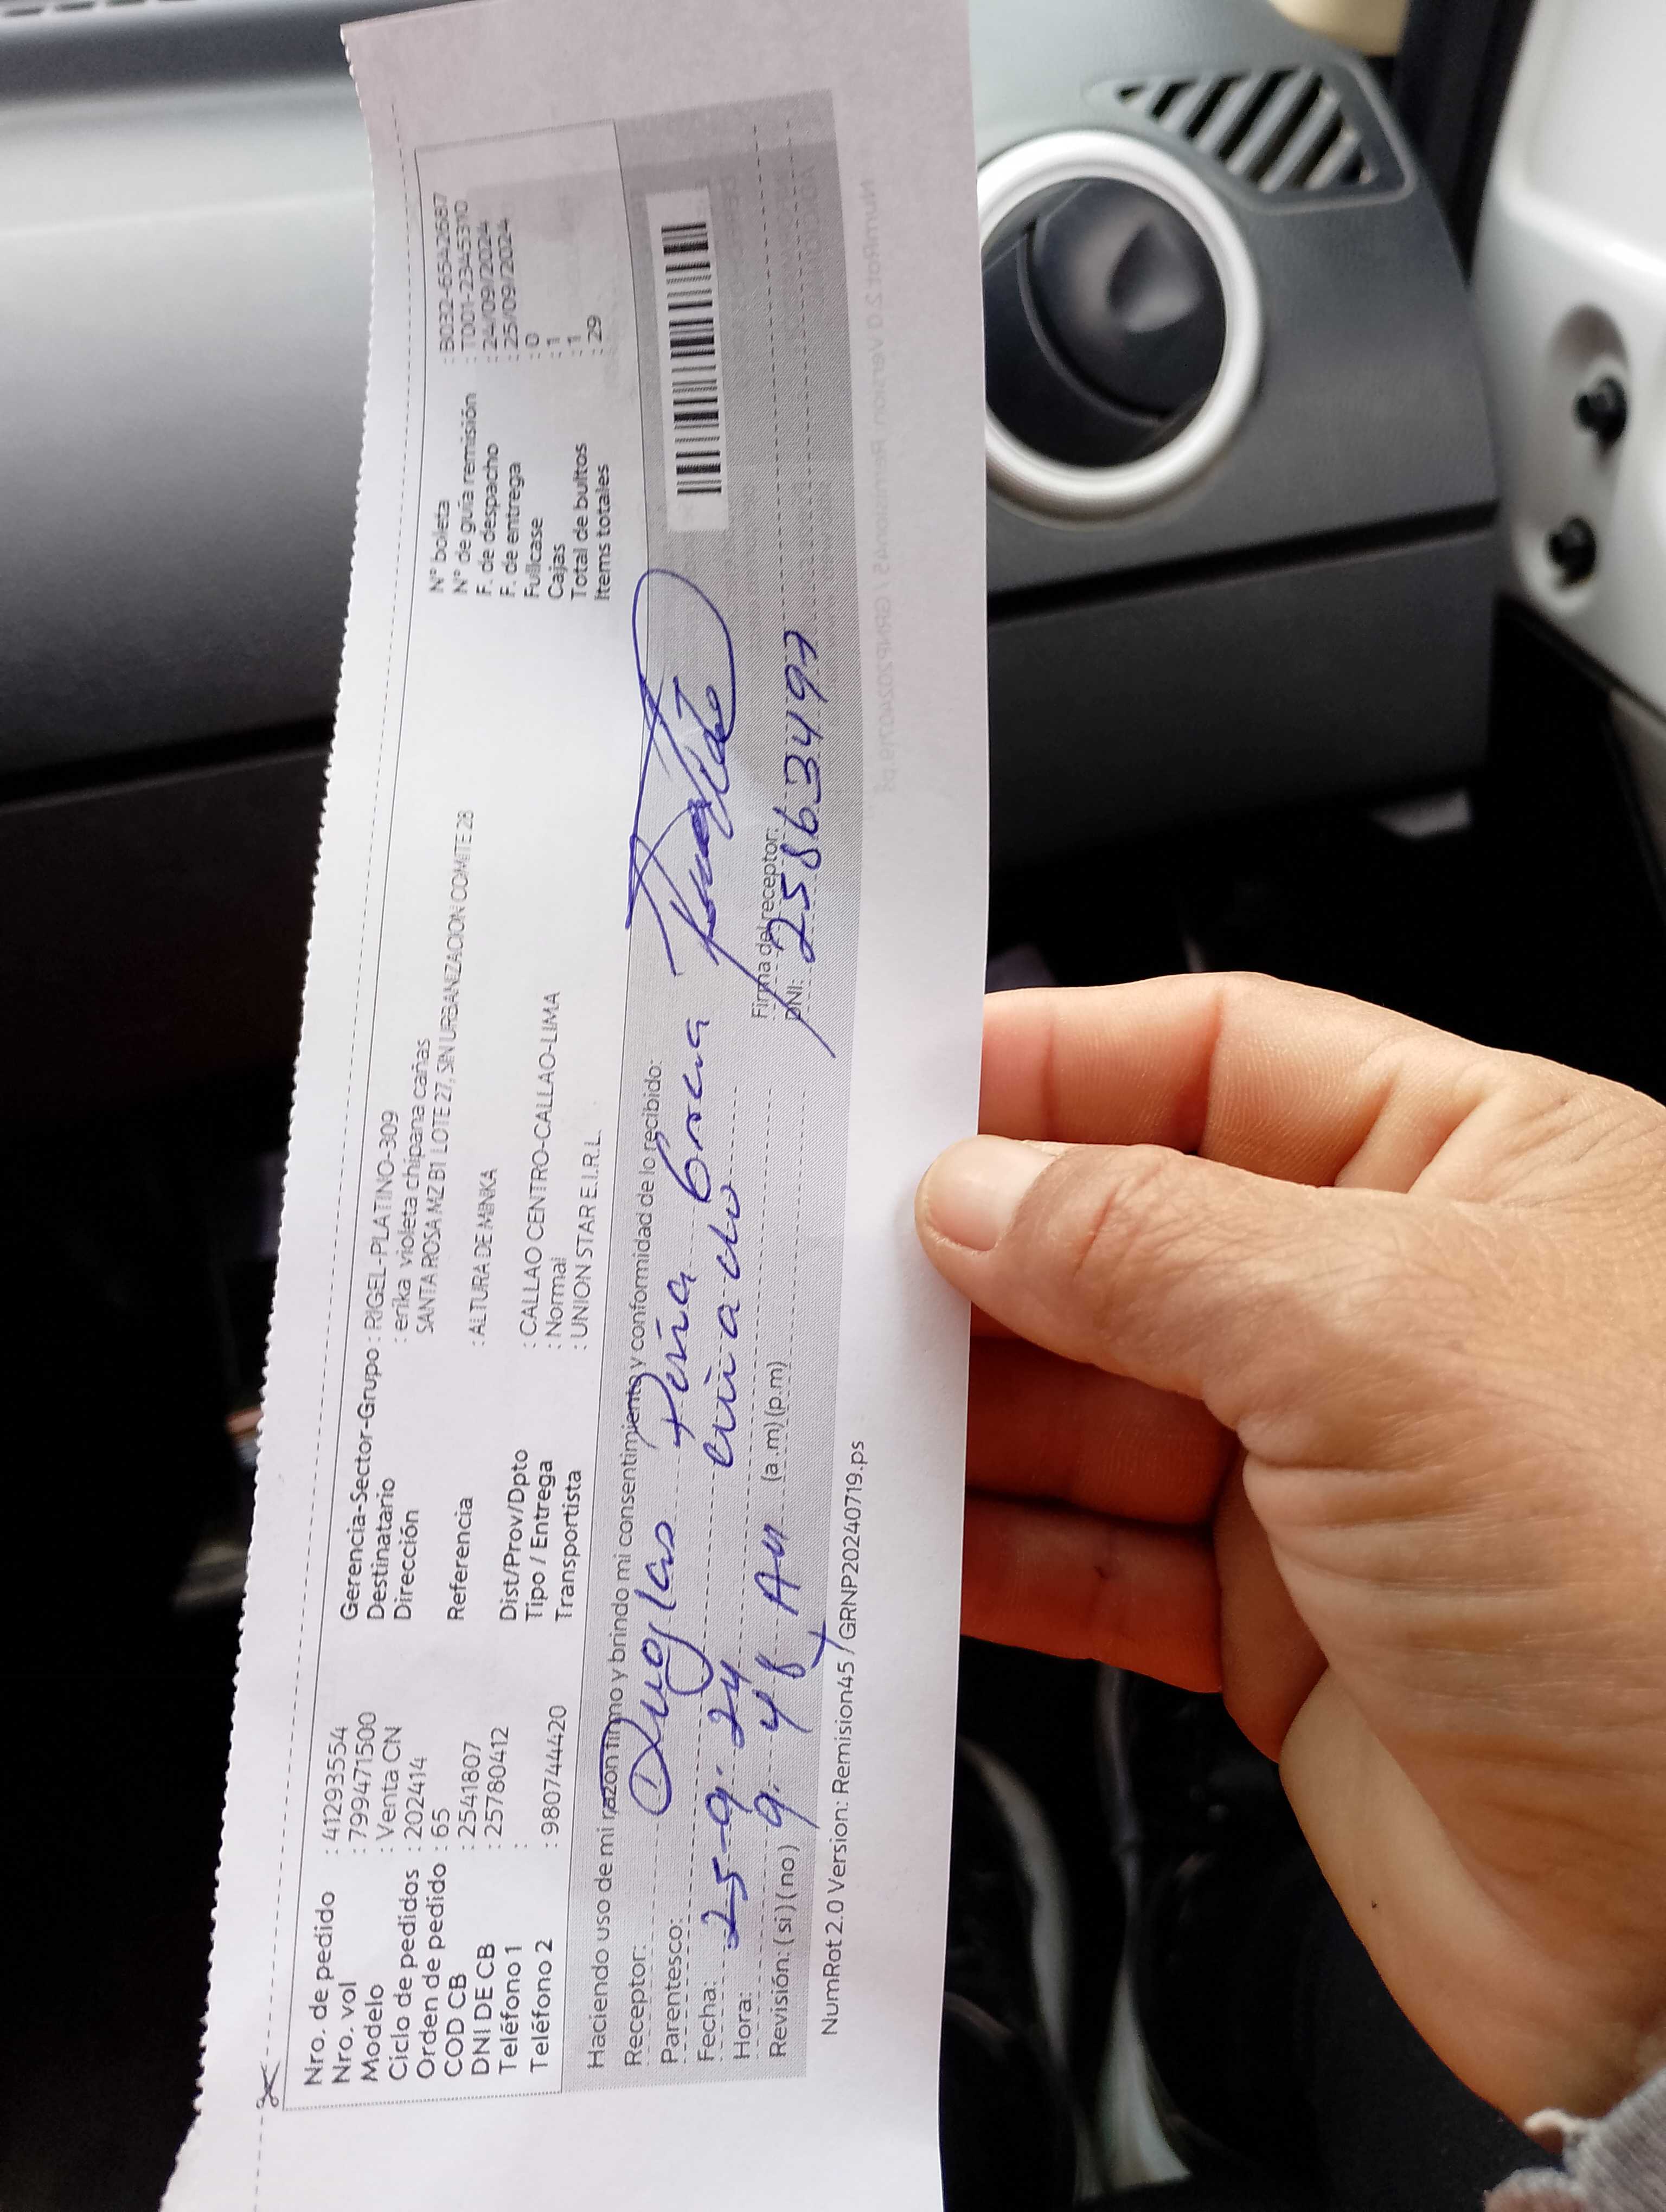 Nro. de pedido : 41293554
Nro. vol : 799471500
Modelo : Venta CN
Ciclo de pedidos : 202414
Orden de pedido : 65
COD CB : 2541807
DNI DE CB : 25780412
Teléfono 1 :
Teléfono 2 : 980744420
Gerencia-Sector-Grupo : RIGEL-PLATINO-309
Destinatario : erika violeta chipana cañas
Dirección SANTA ROSA MZ B1 LOTE 27, SIN URBANIZACION COMITE 28
Referencia : ALTURA DE MINKA
Dist/Prov/Dpto : CALLAO CENTRO-CALLAO-LIMA
Tipo / Entrega : Normal
Transportista : UNION STAR E.I.R.L.
N° boleta : B032-65442687
N° de guía remisión : T001-23453910
F. de despacho : 24/09/2024
F. de entrega : 25/09/2024
Fullcase : 0
Cajas : 1
Total de bultos : 1
Items totales : 29
Haciendo uso de mi razon firmo y brindo mi consentimiento y conformidad de lo recibido:
Receptor: Duglas Peña
Parentesco:
Fecha: 25-9-24
Hora: 9.48 AM (a.m) (p.m)
Revisión: (si) (no)
Firma del receptor:
DNI: 25863497
NumRot 2.0 Version: Remision45 / GRNP20240719.ps